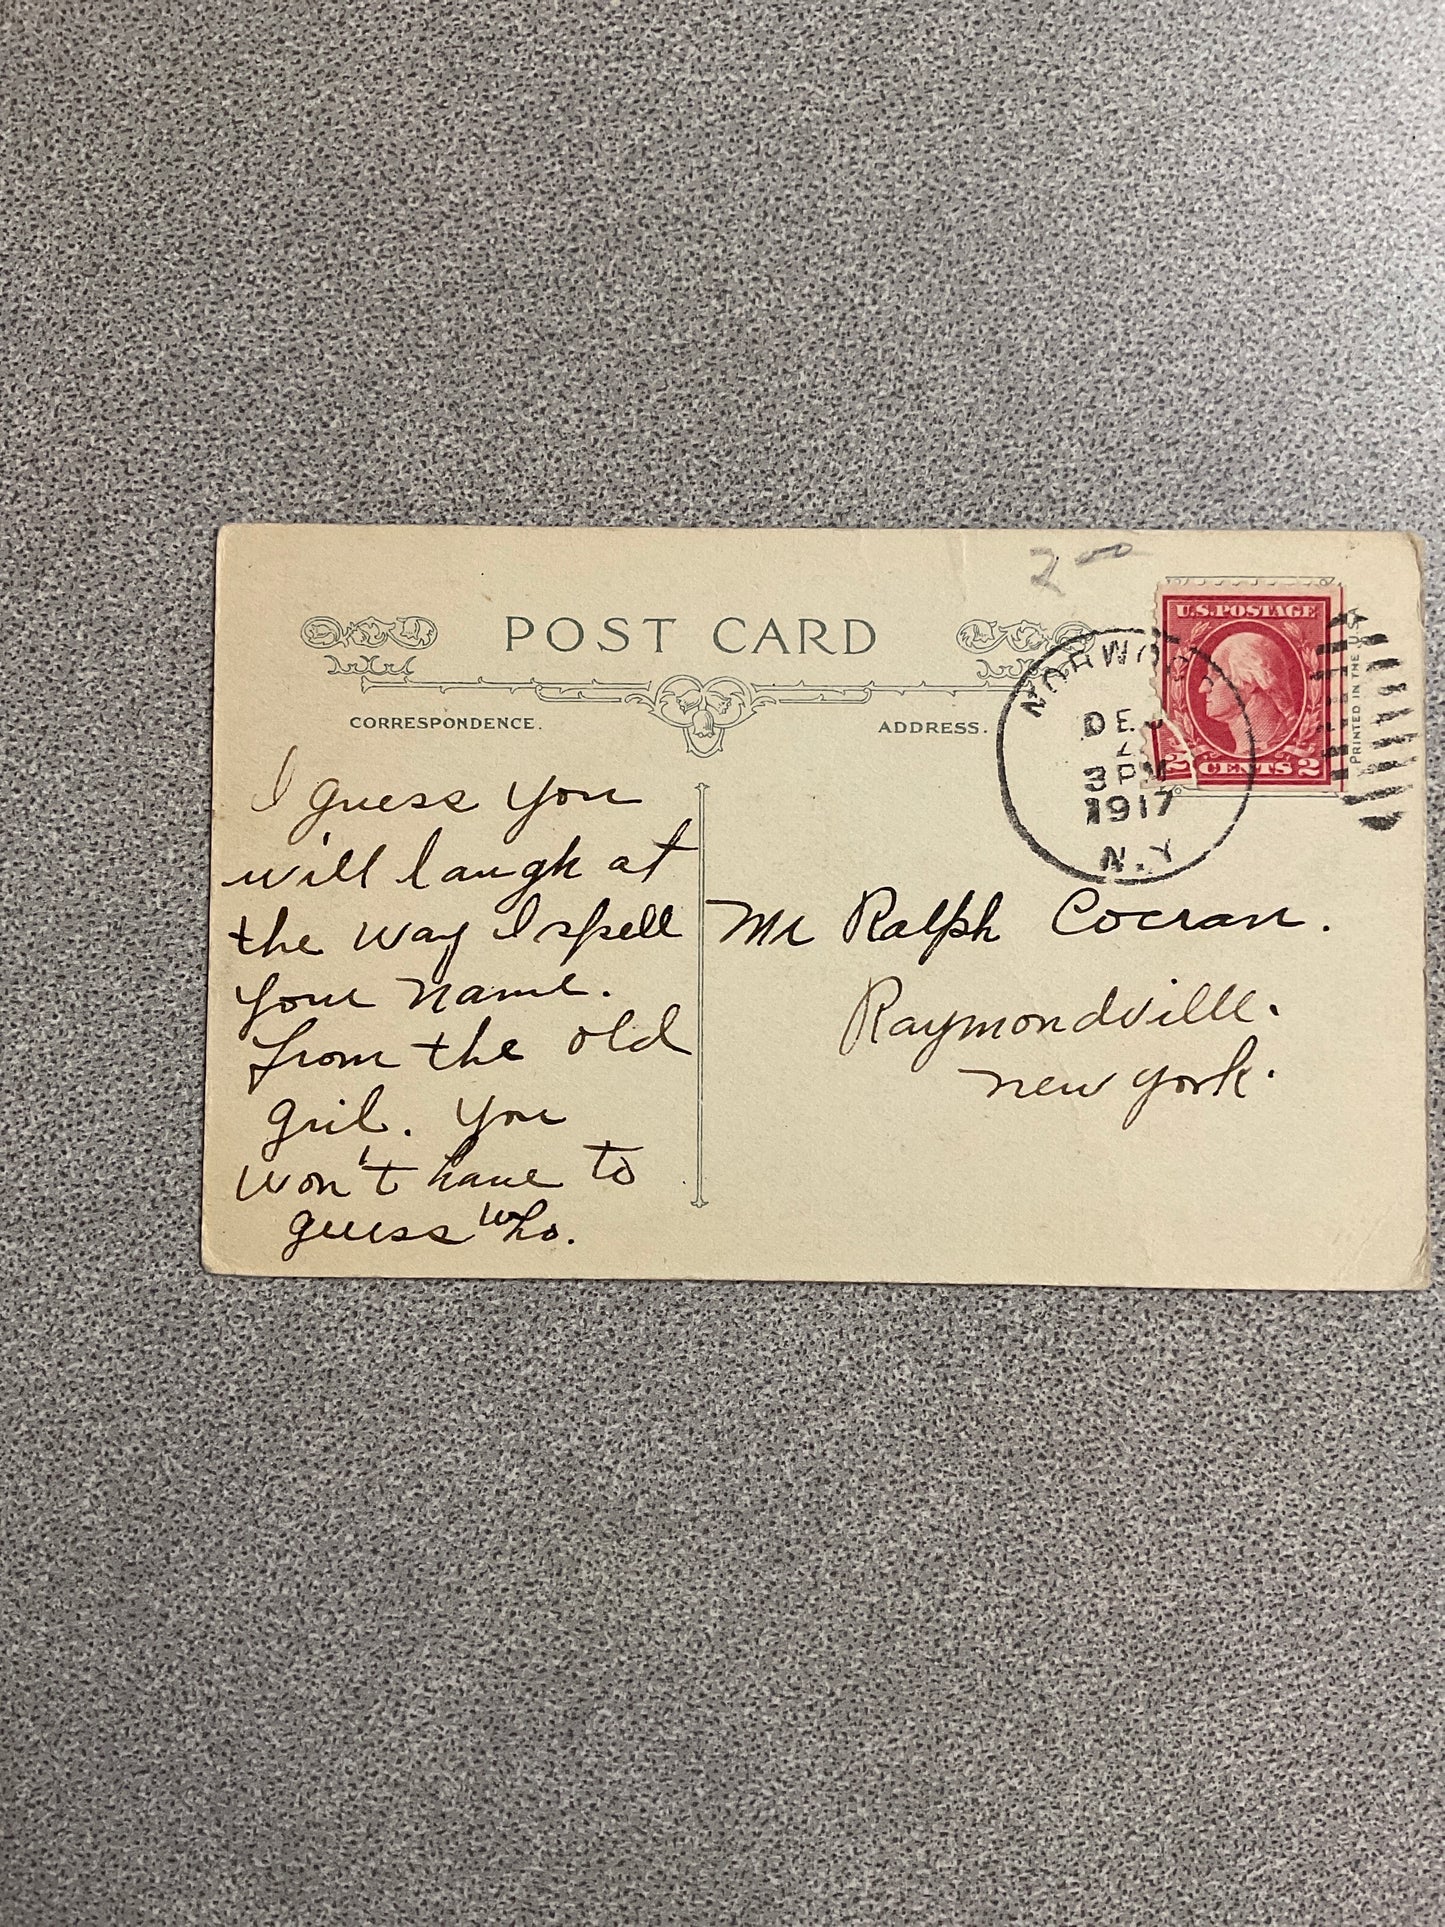 2 00
POST CARD
CORRESPONDENCE.
ADDRESS.
U.S. POSTAGE
2 CENTS 2
PRINTED IN THE U.S.A.
NORWOOD
DEC
3 PM
1917
N.Y.
I guess you
will laugh at
the way I spell
your name.
from the old
gril. you
won't have to
guess who.
Mr Ralph Cocran.
Raymondville.
new york.